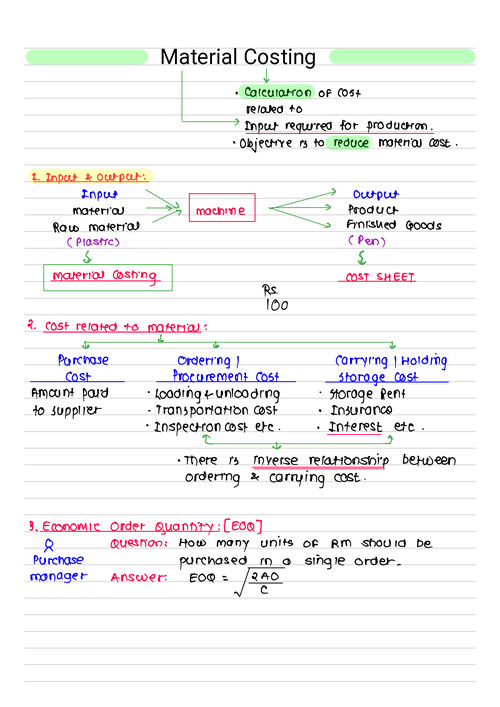 Material Costing
• Calculation of cost
related to
Input required for production.
• Objective is to reduce material cost.
1. Input & Output:
Input
material
Raw material
(Plastic)
machine
Output
Product
Finished Goods
(Pen)
Material Costing
COST SHEET
Rs.
100
2. Cost related to material:
Purchase
Cost
Amount paid
to supplier
Ordering |
Procurement Cost
• Loading & unloading
• Transportation cost
• Inspection cost etc.
Carrying | Holding
Storage Cost
• Storage Rent
• Insurance
• Interest etc.
• There is inverse relationship between
ordering & carrying cost.
3. Economic Order Quantity: [EOQ]
Purchase
manager
Question: How many units of Rm should be
purchased in a single order.
Answer: EOQ = √2AO/C